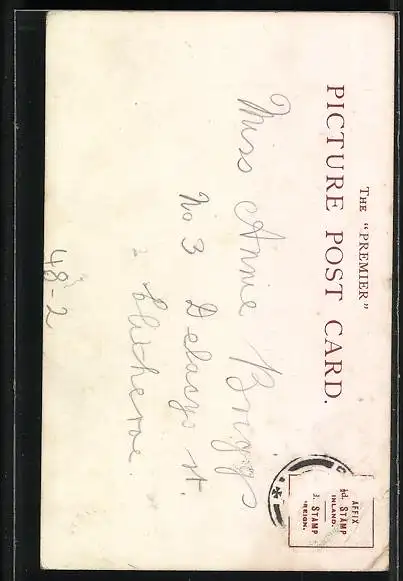 THE "PREMIER"
PICTURE POST CARD.
AFFIX
½d. STAMP
INLAND.
STAMP
REIGN.
Miss Annie Briggs
No 3 Delacys st.
Clitheroe.
48-2